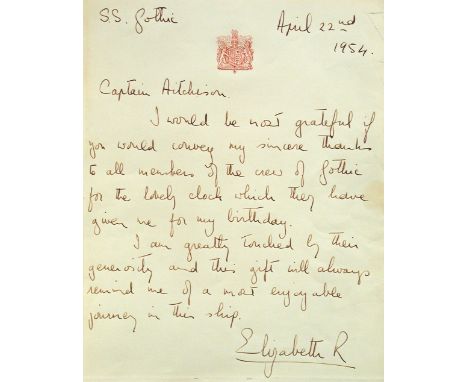 SS. Gothic
April 22nd
1954.
Captain Aitchison.
I would be most grateful if
you would convey my sincere thanks
to all members of the crew of Gothic
for the lovely clock which they have
given me for my birthday.
I am greatly touched by their
generosity and this gift will always
remind me of a most enjoyable
journey in this ship.
Elizabeth R